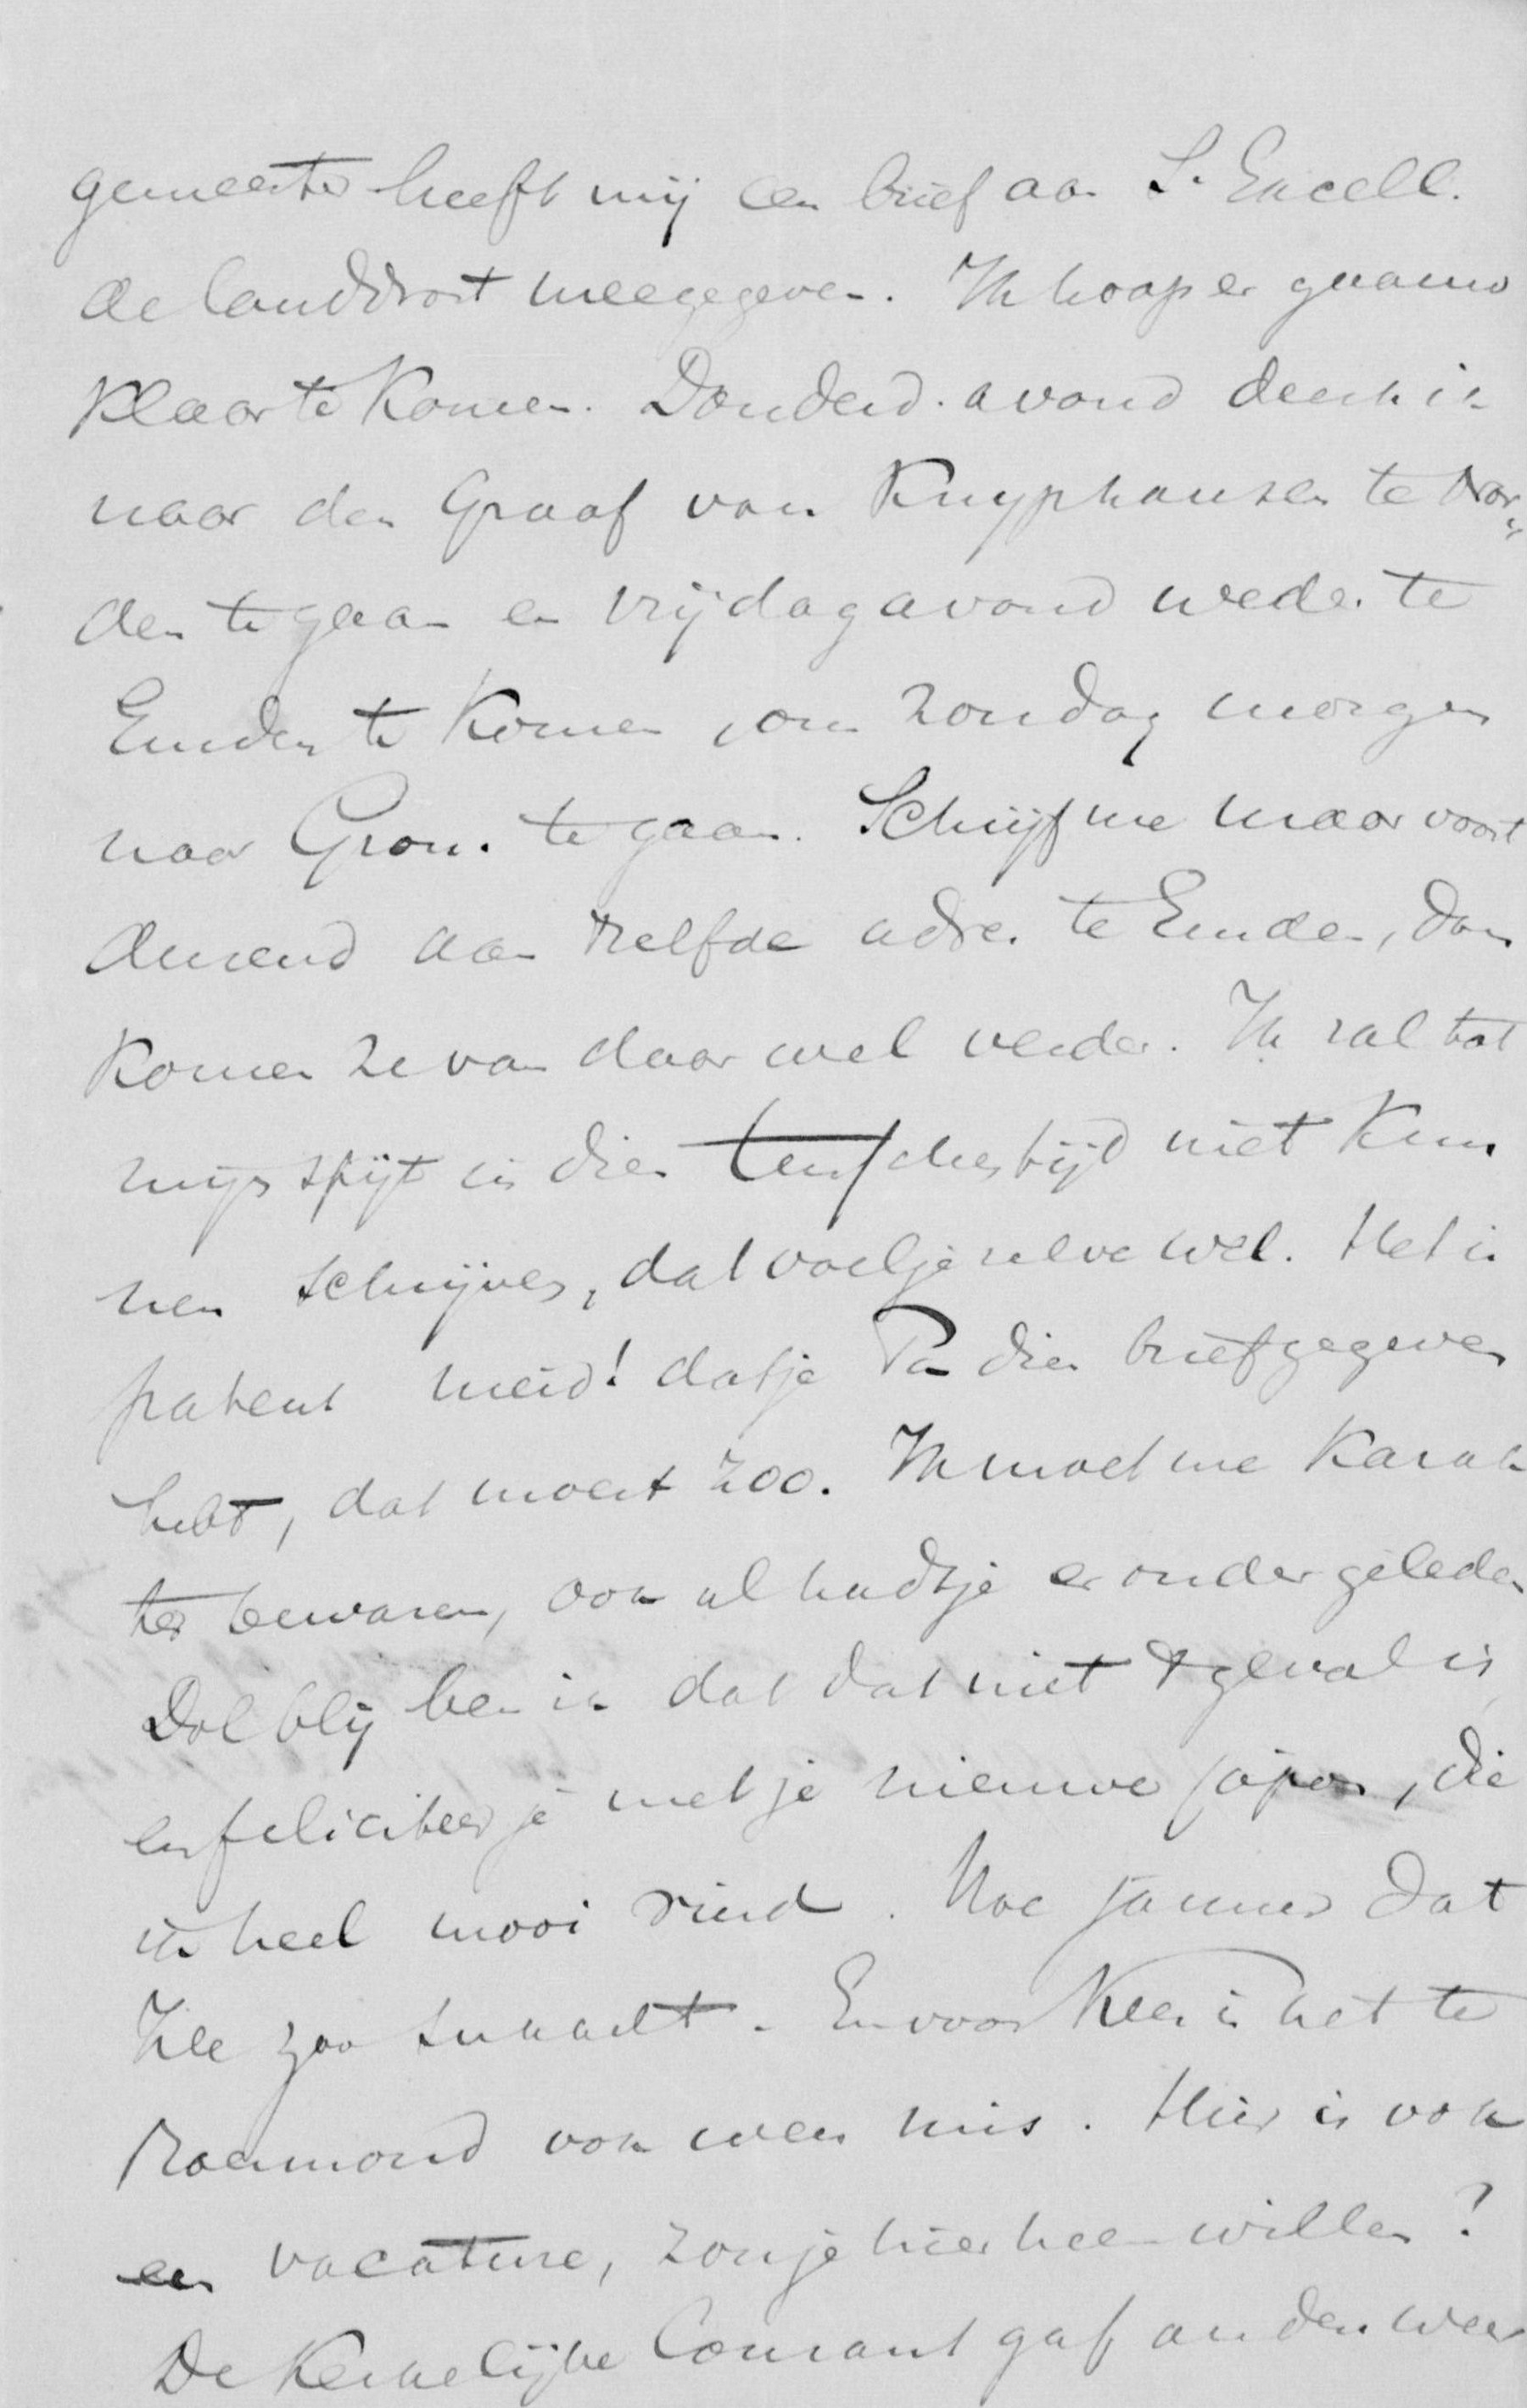 gemeente heeft mij een brief aan Z. Excell.
de landdrost meegegeven. Ik hoop er gaauw
klaar te komen. Donderd. avond denk ik
naar den Graaf van Knyphausen te Nor„
den te gaan en vrijdagavond weder te
Emden te komen, om Zondag morgen
naar Gron. te gaan. Schrijf me maar voort
durend aan 'tzelfde adres te Emden, dan
komen ze van daar wel verder. Ik zal tot
mijn spijt in dien tusschentijd niet kun
nen schrijven, dat voel je zelve wel. Het is
patent meid! dat je Pa dien brief gegeven
hebt, dat moest zoo. Ik moet me Karak
ter bewaren, ook al hadt je er onder geleden
Dolblij ben ik dat dat niet 't geval is,
en feliciteer je met je nieuwe japon, die
ik heel mooi vind. Hoe jammer dat
zoo smaalt. En voor Kees is het te
Roermond ook weer mis. Hier is ook
een vacature, zou je hierheen willen?
De Kerkelijke Courant gaf onder weer